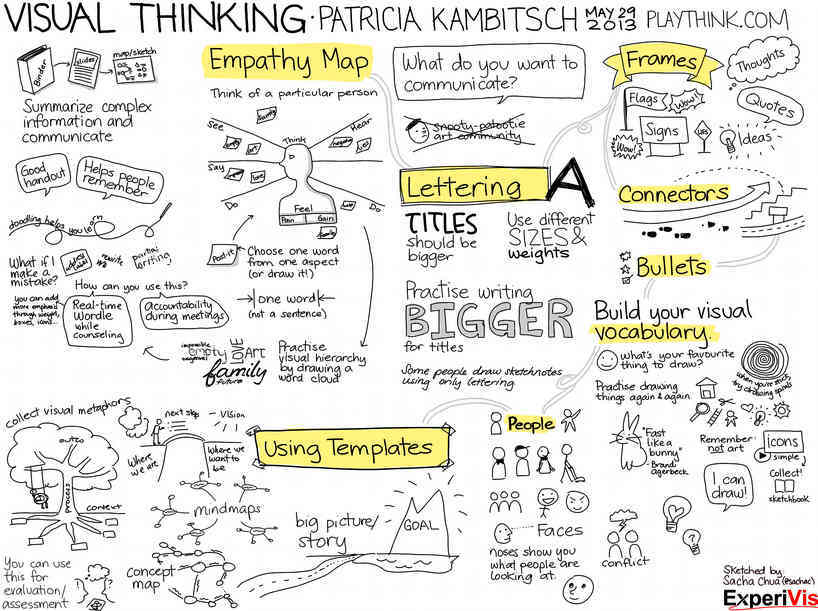 VISUAL THINKING · PATRICIA KAMBITSCH MAY 29 2013 PLAYTHINK.COM
Binder
slides
map/sketch
Summarize complex
information and
communicate
Good
handout
Helps people
remember
doodling helps you learn
What if I
make a
mistake?
address
label
rewrite
partial
writing
you can add
more emphasis
through weight,
boxes, icons...
How can you use this?
Real-time
Wordle
while
counseling
accountability
during meetings
Empathy Map
Think of a particular person
See
Think
Hear
Say
Do
Feel
Pain
Gain
Do
Post-it
Choose one word
from one aspect
(or draw it!)
one word
(not a sentence)
empty
LOVE
ART
family
future
Practise
visual hierarchy
by drawing a
word cloud
What do you want to
communicate?
snooty-patootie
art community
Lettering A
TITLES
should be
bigger
Use different
SIZES &
weights
Practise writing
BIGGER
for titles
Some people draw sketchnotes
using only lettering
Frames
Thoughts
Flags
Wow!
Quotes
Signs
Wow!
Ideas
Connectors
Bullets
Build your visual
vocabulary.
what's your favourite
thing to draw?
when you're stuck,
try drawing spirals
Practise drawing
things again & again
"Fast
like a
bunny"
- Brandy
agerbeck
Remember:
not art
icons
simple
Collect!
sketchbook
I can
draw!
conflict
People
Faces
noses show you
what people are
looking at.
Using Templates
collect visual metaphors
outco
process
context
You can use
this for
evaluation/
assessment
next step
VISION
Where
we are
Where we
want to
be
mindmaps
concept
map
big picture/
story
GOAL
Sketched by
Sacha Chua (@sachac)
ExperiVis